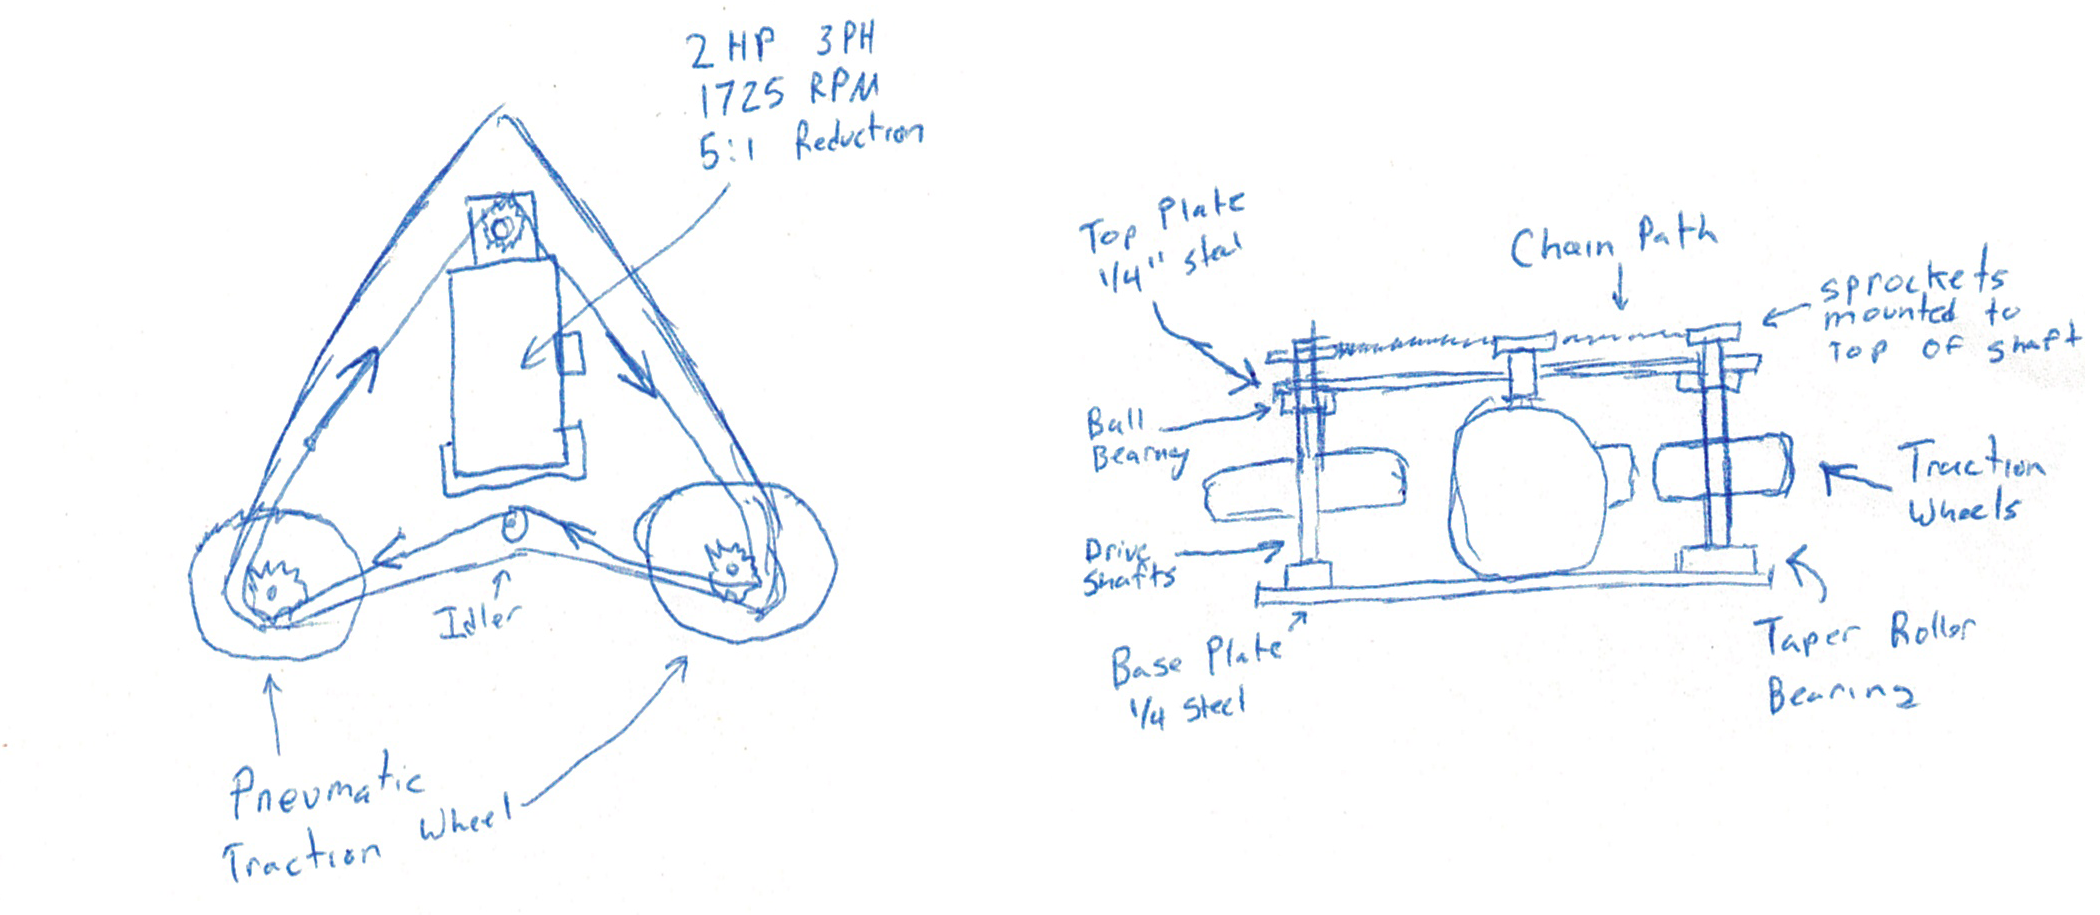 2 HP 3PH
1725 RPM
5:1 Reduction
Idler
Pneumatic
Traction Wheel
Top Plate
1/4" steel
Chain Path
sprockets
mounted to
Top of shaft
Ball
Bearing
Traction
Wheels
Drive
Shafts
Base Plate
1/4 Steel
Taper Roller
Bearing